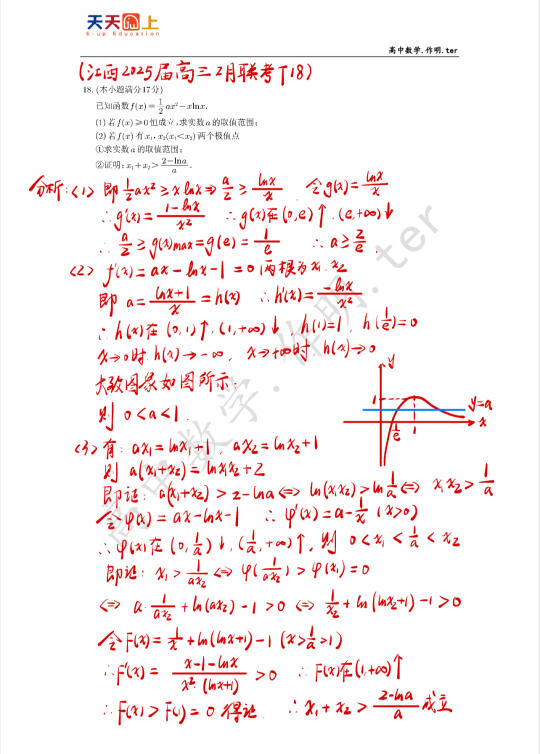 天天向上
E-up Education
高中数学.作明.ter
(江西2025届高三2月联考T18)
18.(本小题满分17分)
已知函数f(x)=1/2 ax²-xlnx.
(1)若f(x)≥0恒成立,求实数a的取值范围;
(2)若f(x)有x₁,x₂(x₁<x₂)两个极值点
①求实数a的取值范围;
②证明:x₁+x₂>(2-lna)/a.
分析:(1) 即 1/2 ax²≥xlnx⇒ a/2≥lnx/x 令g(x)=lnx/x
∴g'(x)=(1-lnx)/x² ∴g(x)在(0,e)↑.(e,+∞)↓
∴ a/2≥g(x)max=g(e)=1/e ∴a≥2/e.
(2) f'(x)=ax-lnx-1=0两根为x₁.x₂
即 a=(lnx+1)/x=h(x) ∴h'(x)=-lnx/x²
∴h(x)在(0,1)↑,(1,+∞)↓,h(1)=1,h(1/e)=0
x→0时.h(x)→-∞,x→+∞时 h(x)→0
大致图象如图所示:
则 0<a<1.
y
1
y=a
1/e
1
x
(3)有:ax₁=lnx₁+1,ax₂=lnx₂+1
则 a(x₁+x₂)=lnx₁x₂+2
即证:a(x₁+x₂)>2-lna⇔ln(x₁x₂)>ln1/a⇔x₁x₂>1/a
令φ(x)=ax-lnx-1 ∴φ'(x)=a-1/x (x>0)
∴φ(x)在(0,1/a)↓,(1/a,+∞)↑,则 0<x₁<1/a<x₂
即证:x₁>1/(ax₂)⇔φ(1/(ax₂))>φ(x₁)=0
⇔a·1/(ax₂)+ln(ax₂)-1>0⇔1/x₂+ln(lnx₂+1)-1>0
令F(x)=1/x+ln(lnx+1)-1(x>1/a>1)
∴F'(x)=(x-1-lnx)/(x²·(lnx+1))>0 ∴F(x)在(1,+∞)↑
∴F(x)>F(1)=0 得证 ∴x₁+x₂>(2-lna)/a成立
高中数学.作明.ter